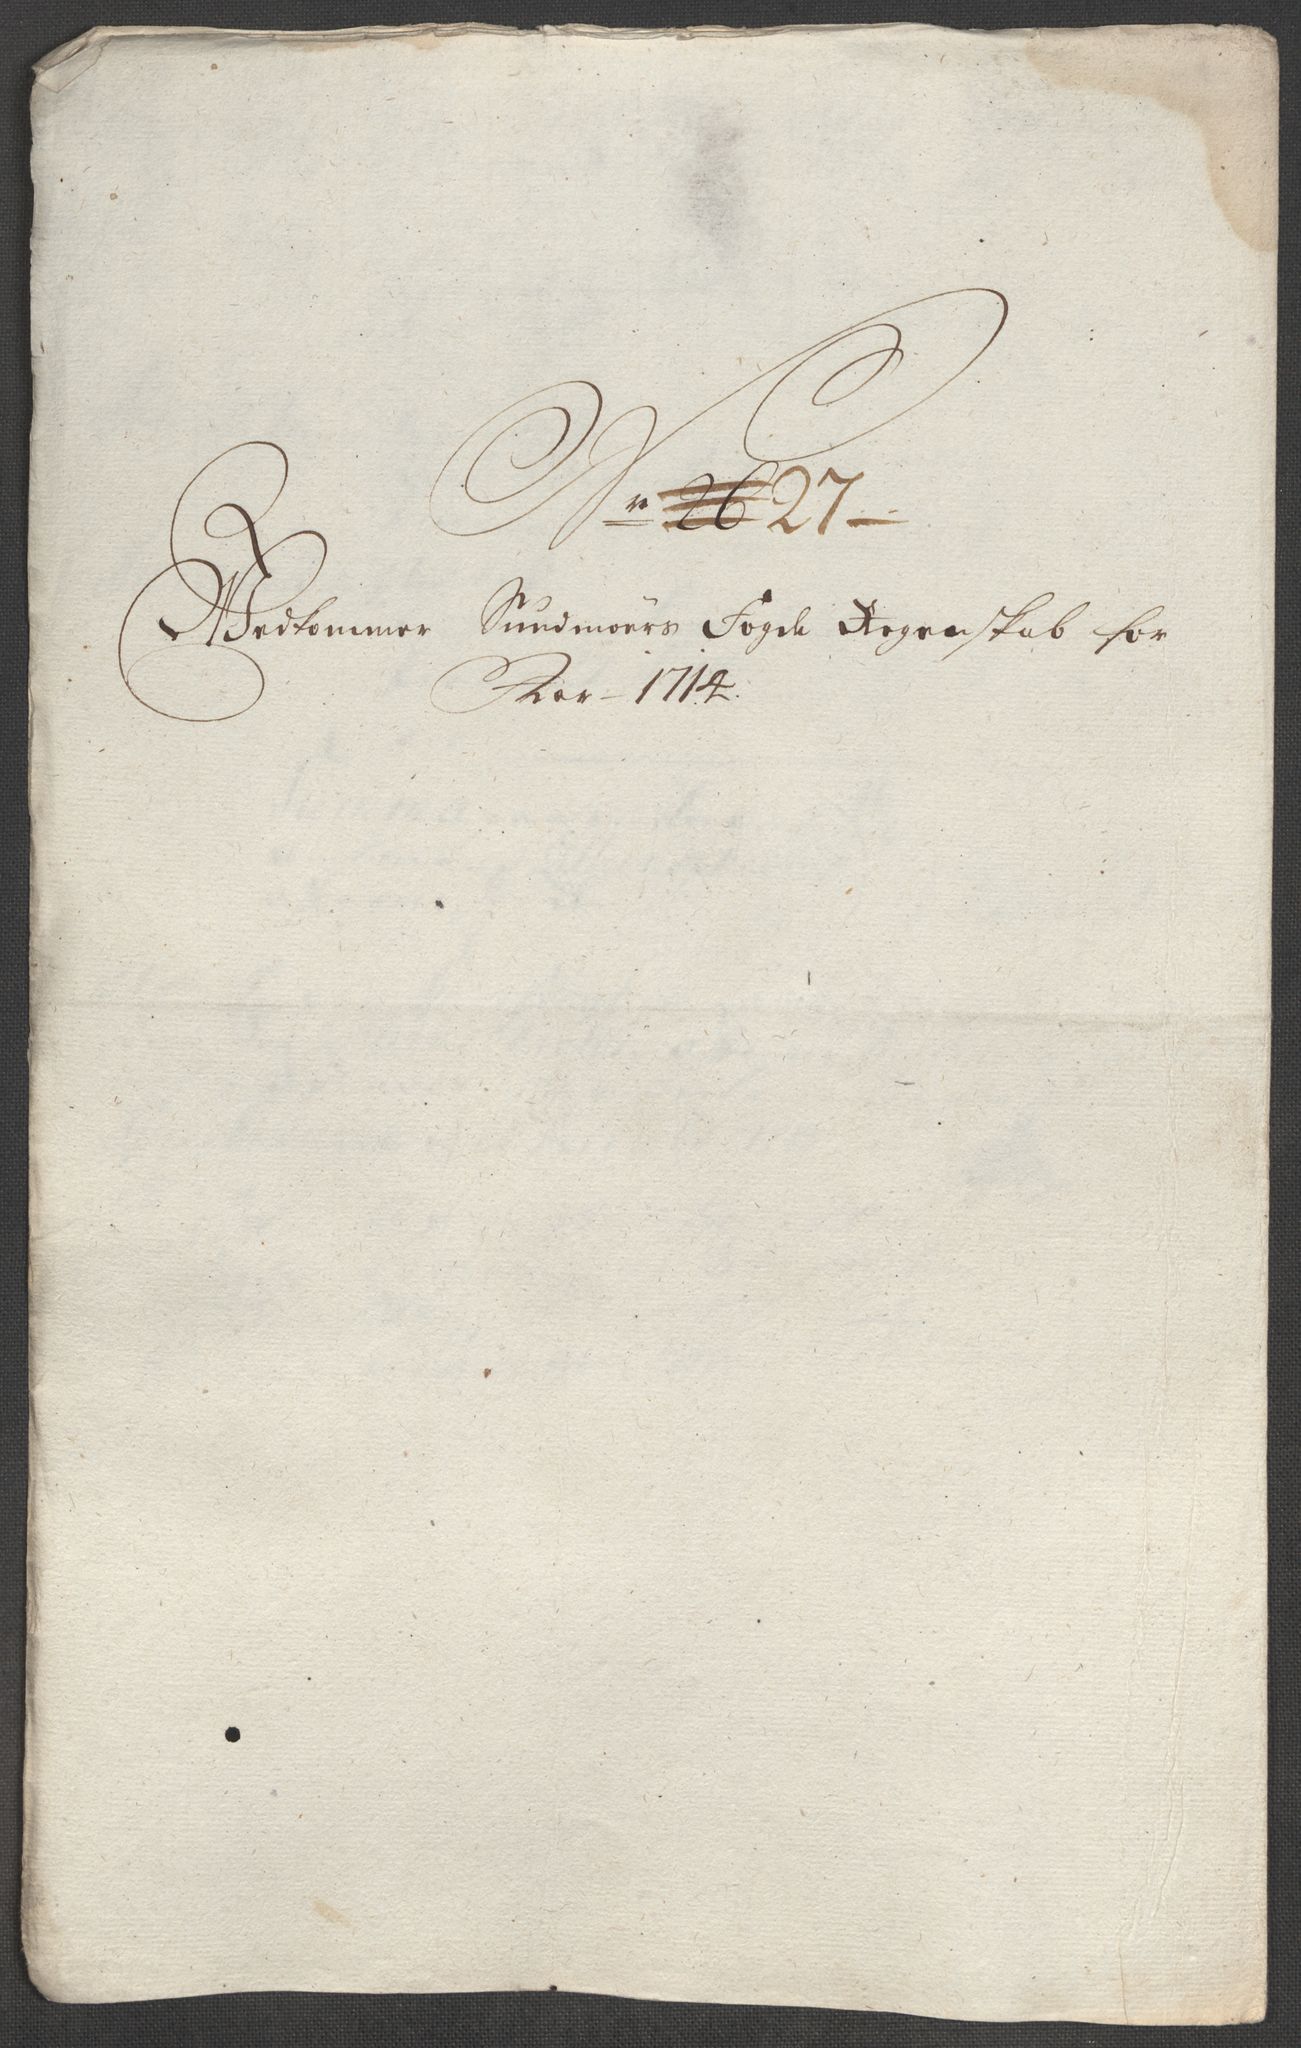 Nr 26 27
Vedkommer Sundmøers Fogde Regenskab for
Aar 1714.